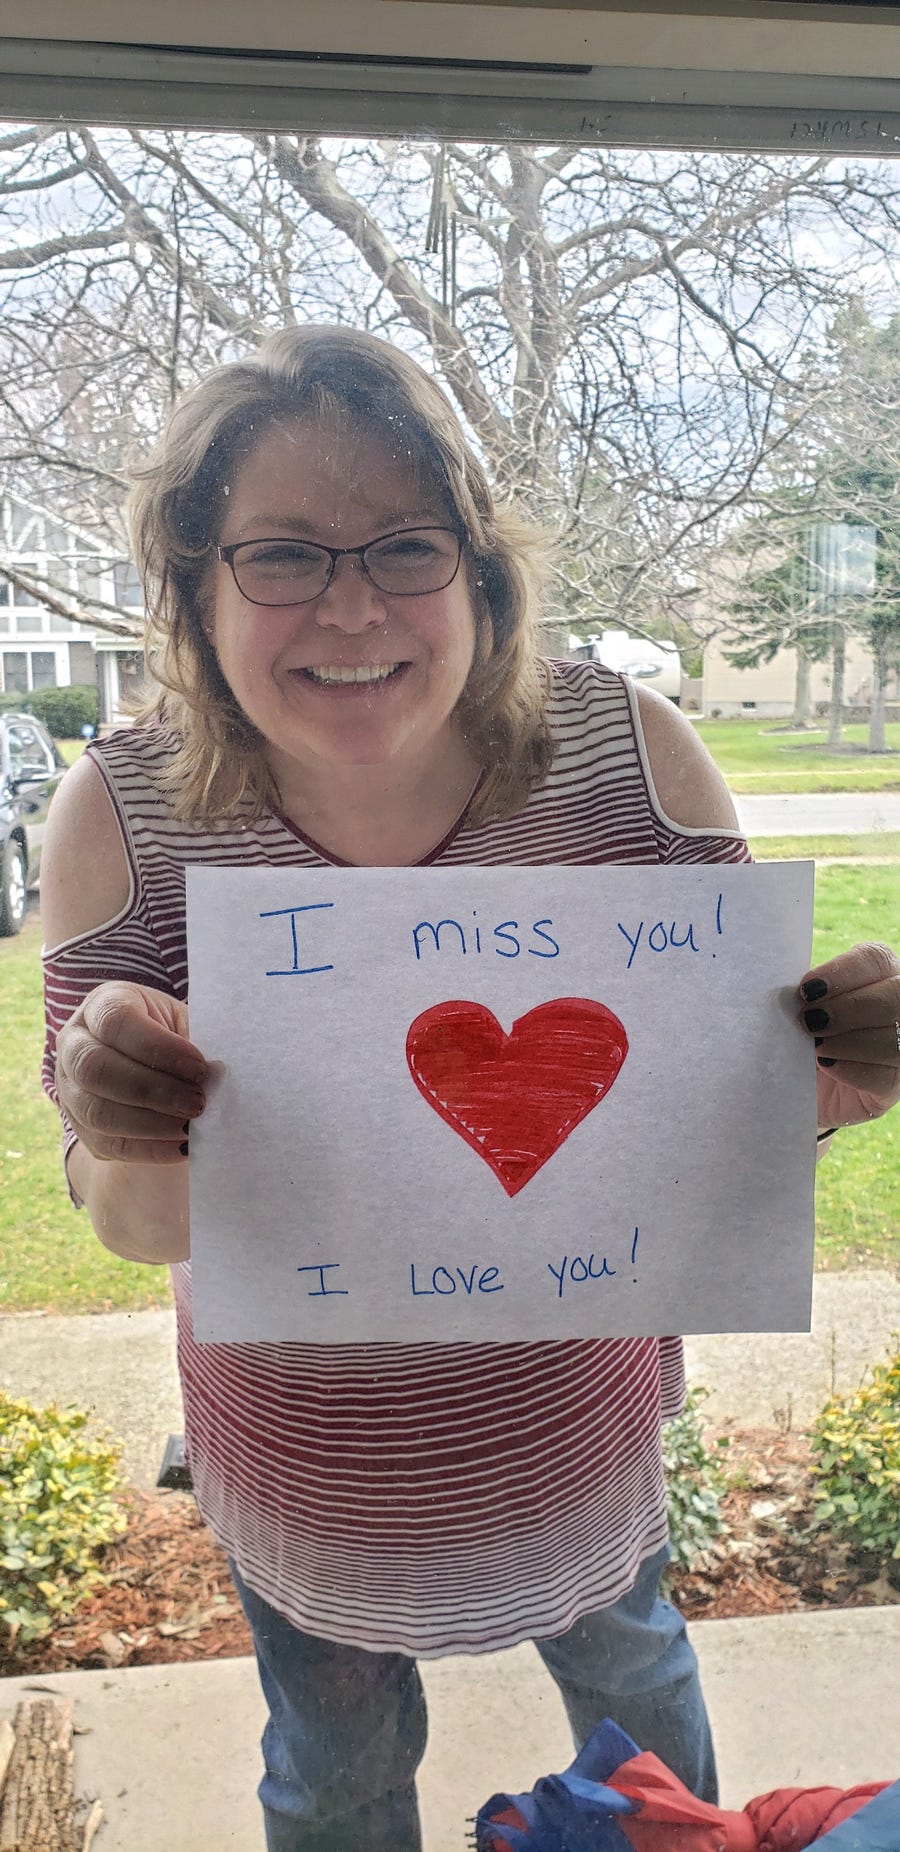 I miss you!
I Love you!